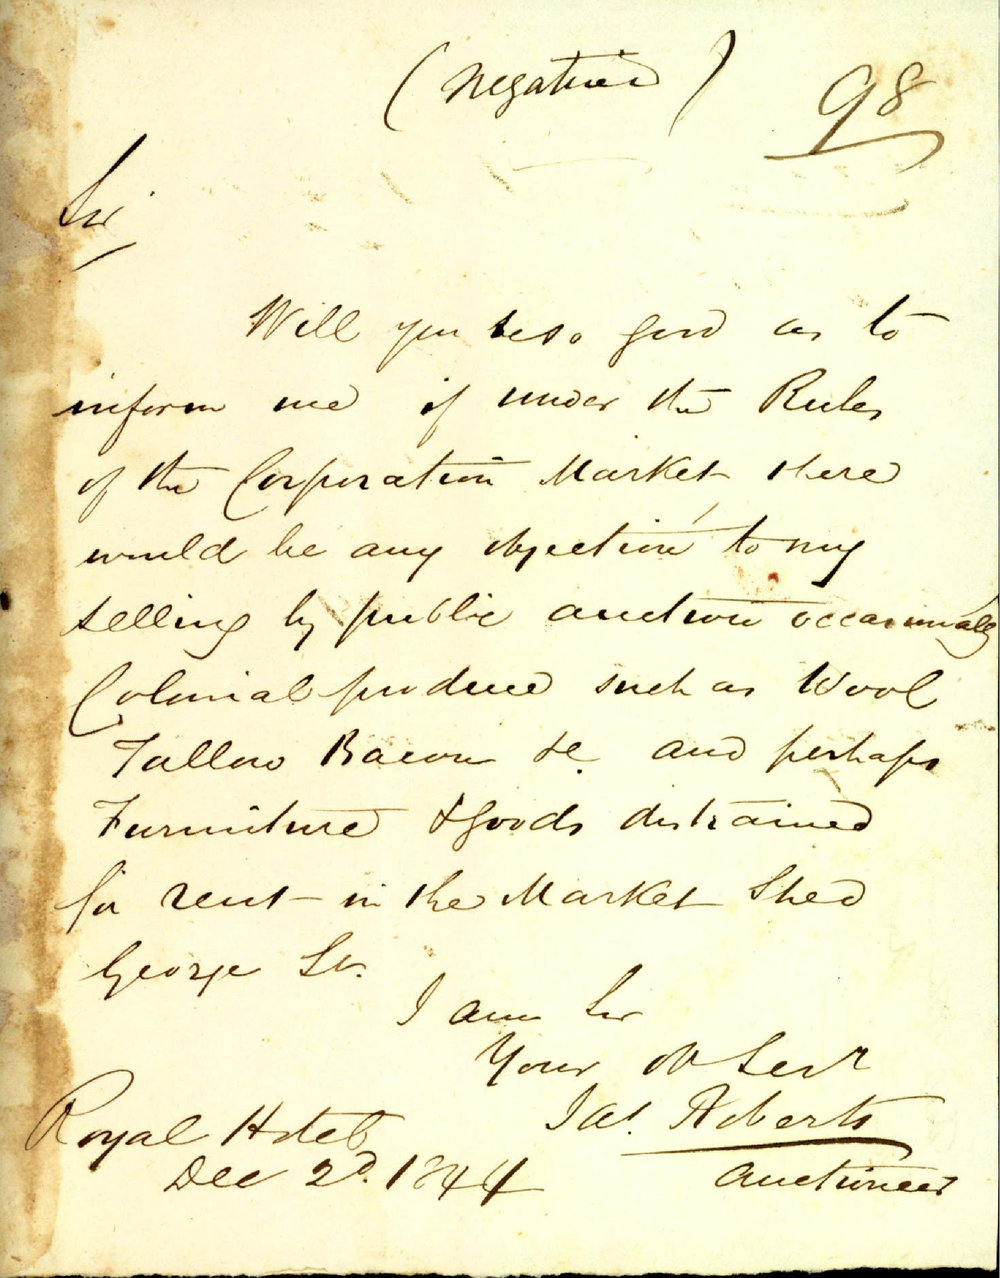 (Negatived)
98
Sir
Will you be so good as to
inform me if under the Rules
of the Corporation Market there
would be any objection to my
selling by public auction occasionally
Colonial produce such as Wool
Tallow Bacon &c. and perhaps
Furniture & goods distrained
for rent - in the Market Shed
George St.
I am Sir
Your Ob Servt
Jas. Roberts
Auctioneer
Royal Hotel
Dec 2d. 1844